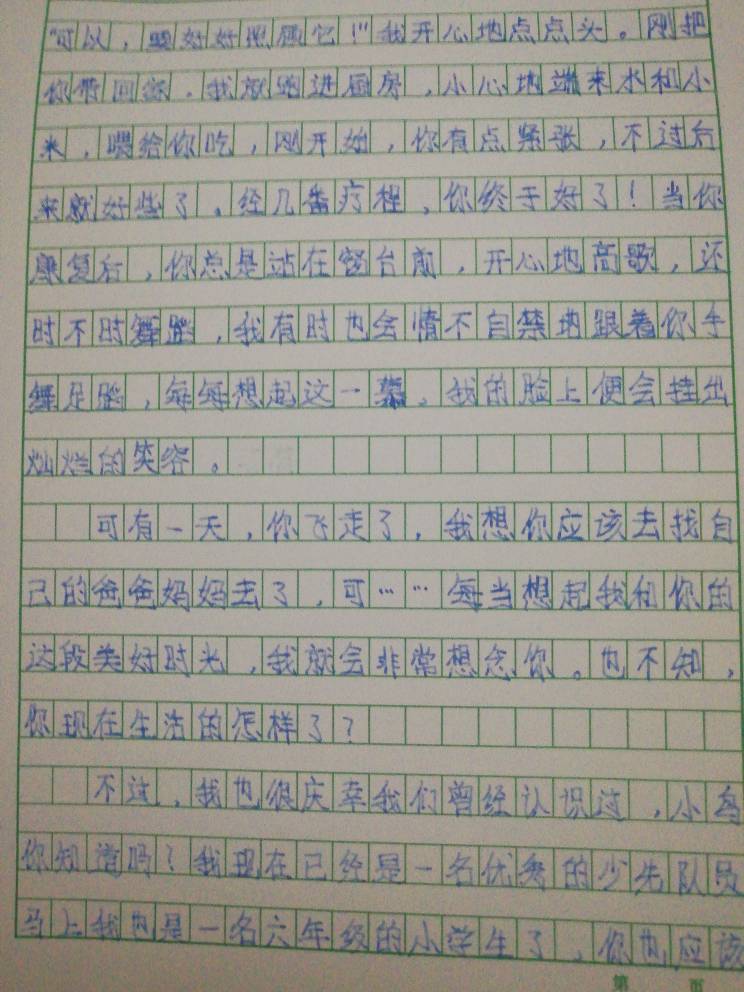 “可以，要好好照顾它！”我开心地点点头。刚把
你带回家，我就跑进厨房，小心地端来水和小
米，喂给你吃，刚开始，你有点紧张，不过后
来就好些了。经几番疗程，你终于好了！当你
康复后，你总是站在窗台前，开心地高歌，还
时不时舞蹈，我有时也会情不自禁地跟着你手
舞足蹈，每每想起这一幕，我的脸上便会挂出
灿烂的笑容。
可有一天，你飞走了，我想你应该去找自
己的爸爸妈妈去了，可……每当想起我和你的
这段美好时光，我就会非常想念你。也不知，
你现在生活的怎样了？
不过，我也很庆幸我们曾经认识过，小鸟
你知道吗？我现在已经是一名优秀的少先队员
马上我也是一名六年级的小学生了，你也应该
第 页